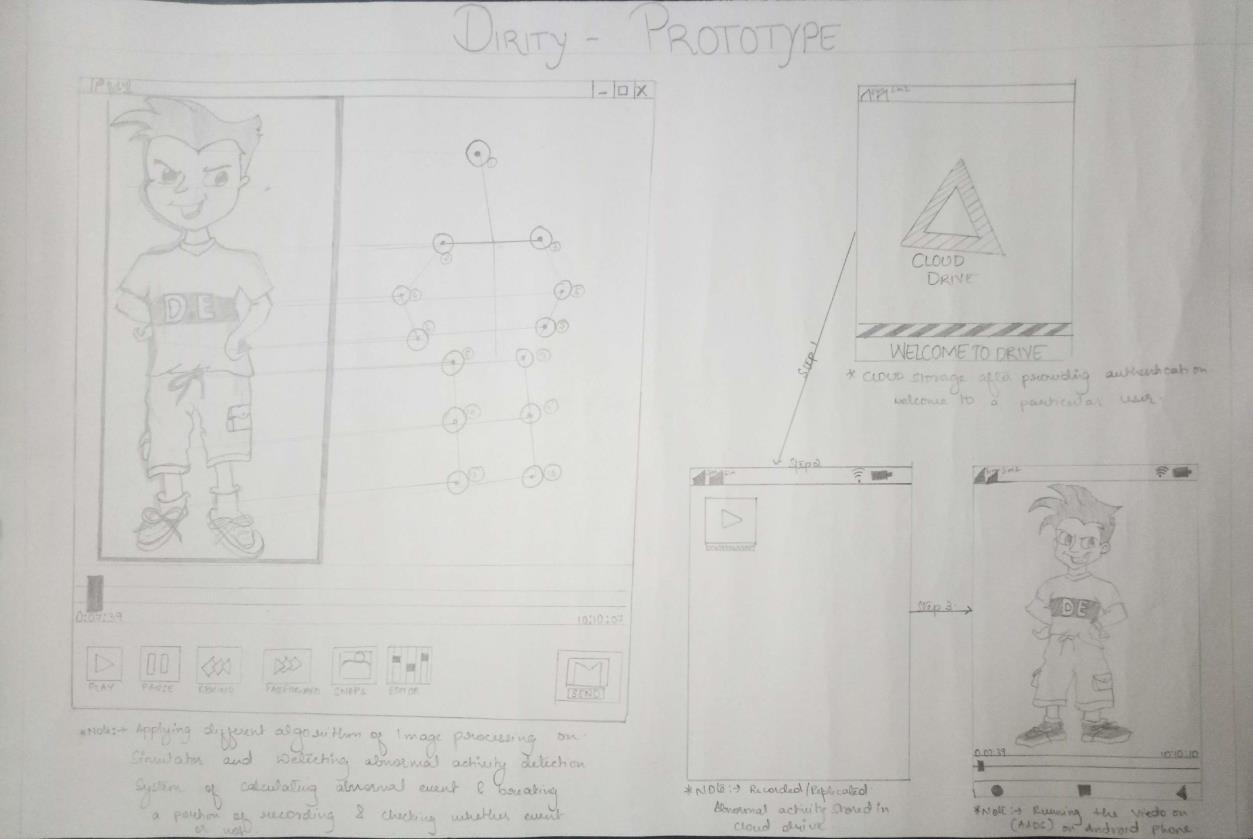 DIRITY - PROTOTYPE
Play
DE
0:07:39
10:10:07
PLAY
PAUSE
REWIND
FASTFORWARD
SNAPS
EDITOR
SEND
*Note:→ Applying different algorithm of Image processing on
Simulator and Detecting abnormal activity detection
System of calculating abnormal event & breaking
a portion of recording & checking whether event
or not
CLOUD
DRIVE
WELCOME TO DRIVE
* Cloud storage after providing authentication
welcome to a particular user.
Step 1
Step 2
*NOte:→ Recorded/Replicated
Abnormal activity stored in
Cloud drive
Step 3
DE
0:07:39
10:10:10
*Note:→ Running the Viedo on
on Android Phone